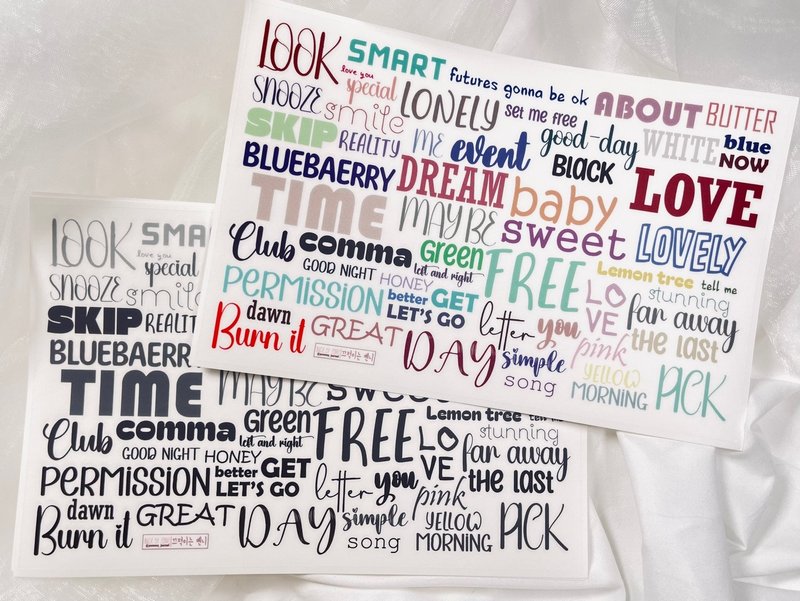 LOOK SMART
love you
futures gonna be ok
ABOUT BUTTER
SNOOZE
special
LONELY
set me free
smile
good-day
WHITE
blue
NOW
SKIP
REALITY
ME
event
BLACK
BLUEBAERRY
DREAM
baby
LOVE
TIME
MAYBE
sweet
LOVELY
Club
comma
Green
left and right
GOOD NIGHT
HONEY
FREE
Lemon tree
tell me
LO
VE
stunning
PERMISSION
better
GET
LET'S GO
far away
dawn
Burn it
GREAT
letter
you
the last
DAY
simple
song
pink
YELLOW
MORNING
PICK
LOOK SMAR
love you
special
SNOOZE
smile
SKIP
REALIT
BLUEBAERR
TIME
MAYBE
sweet
Club
comma
Green
left and right
GOOD NIGHT
HONEY
FREE
Lemon tree
tell me
LO
VE
stunning
PERMISSION
better
GET
LET'S GO
far away
dawn
Burn it
GREAT
letter
you
the last
DAY
simple
song
pink
YELLOW
MORNING
PICK